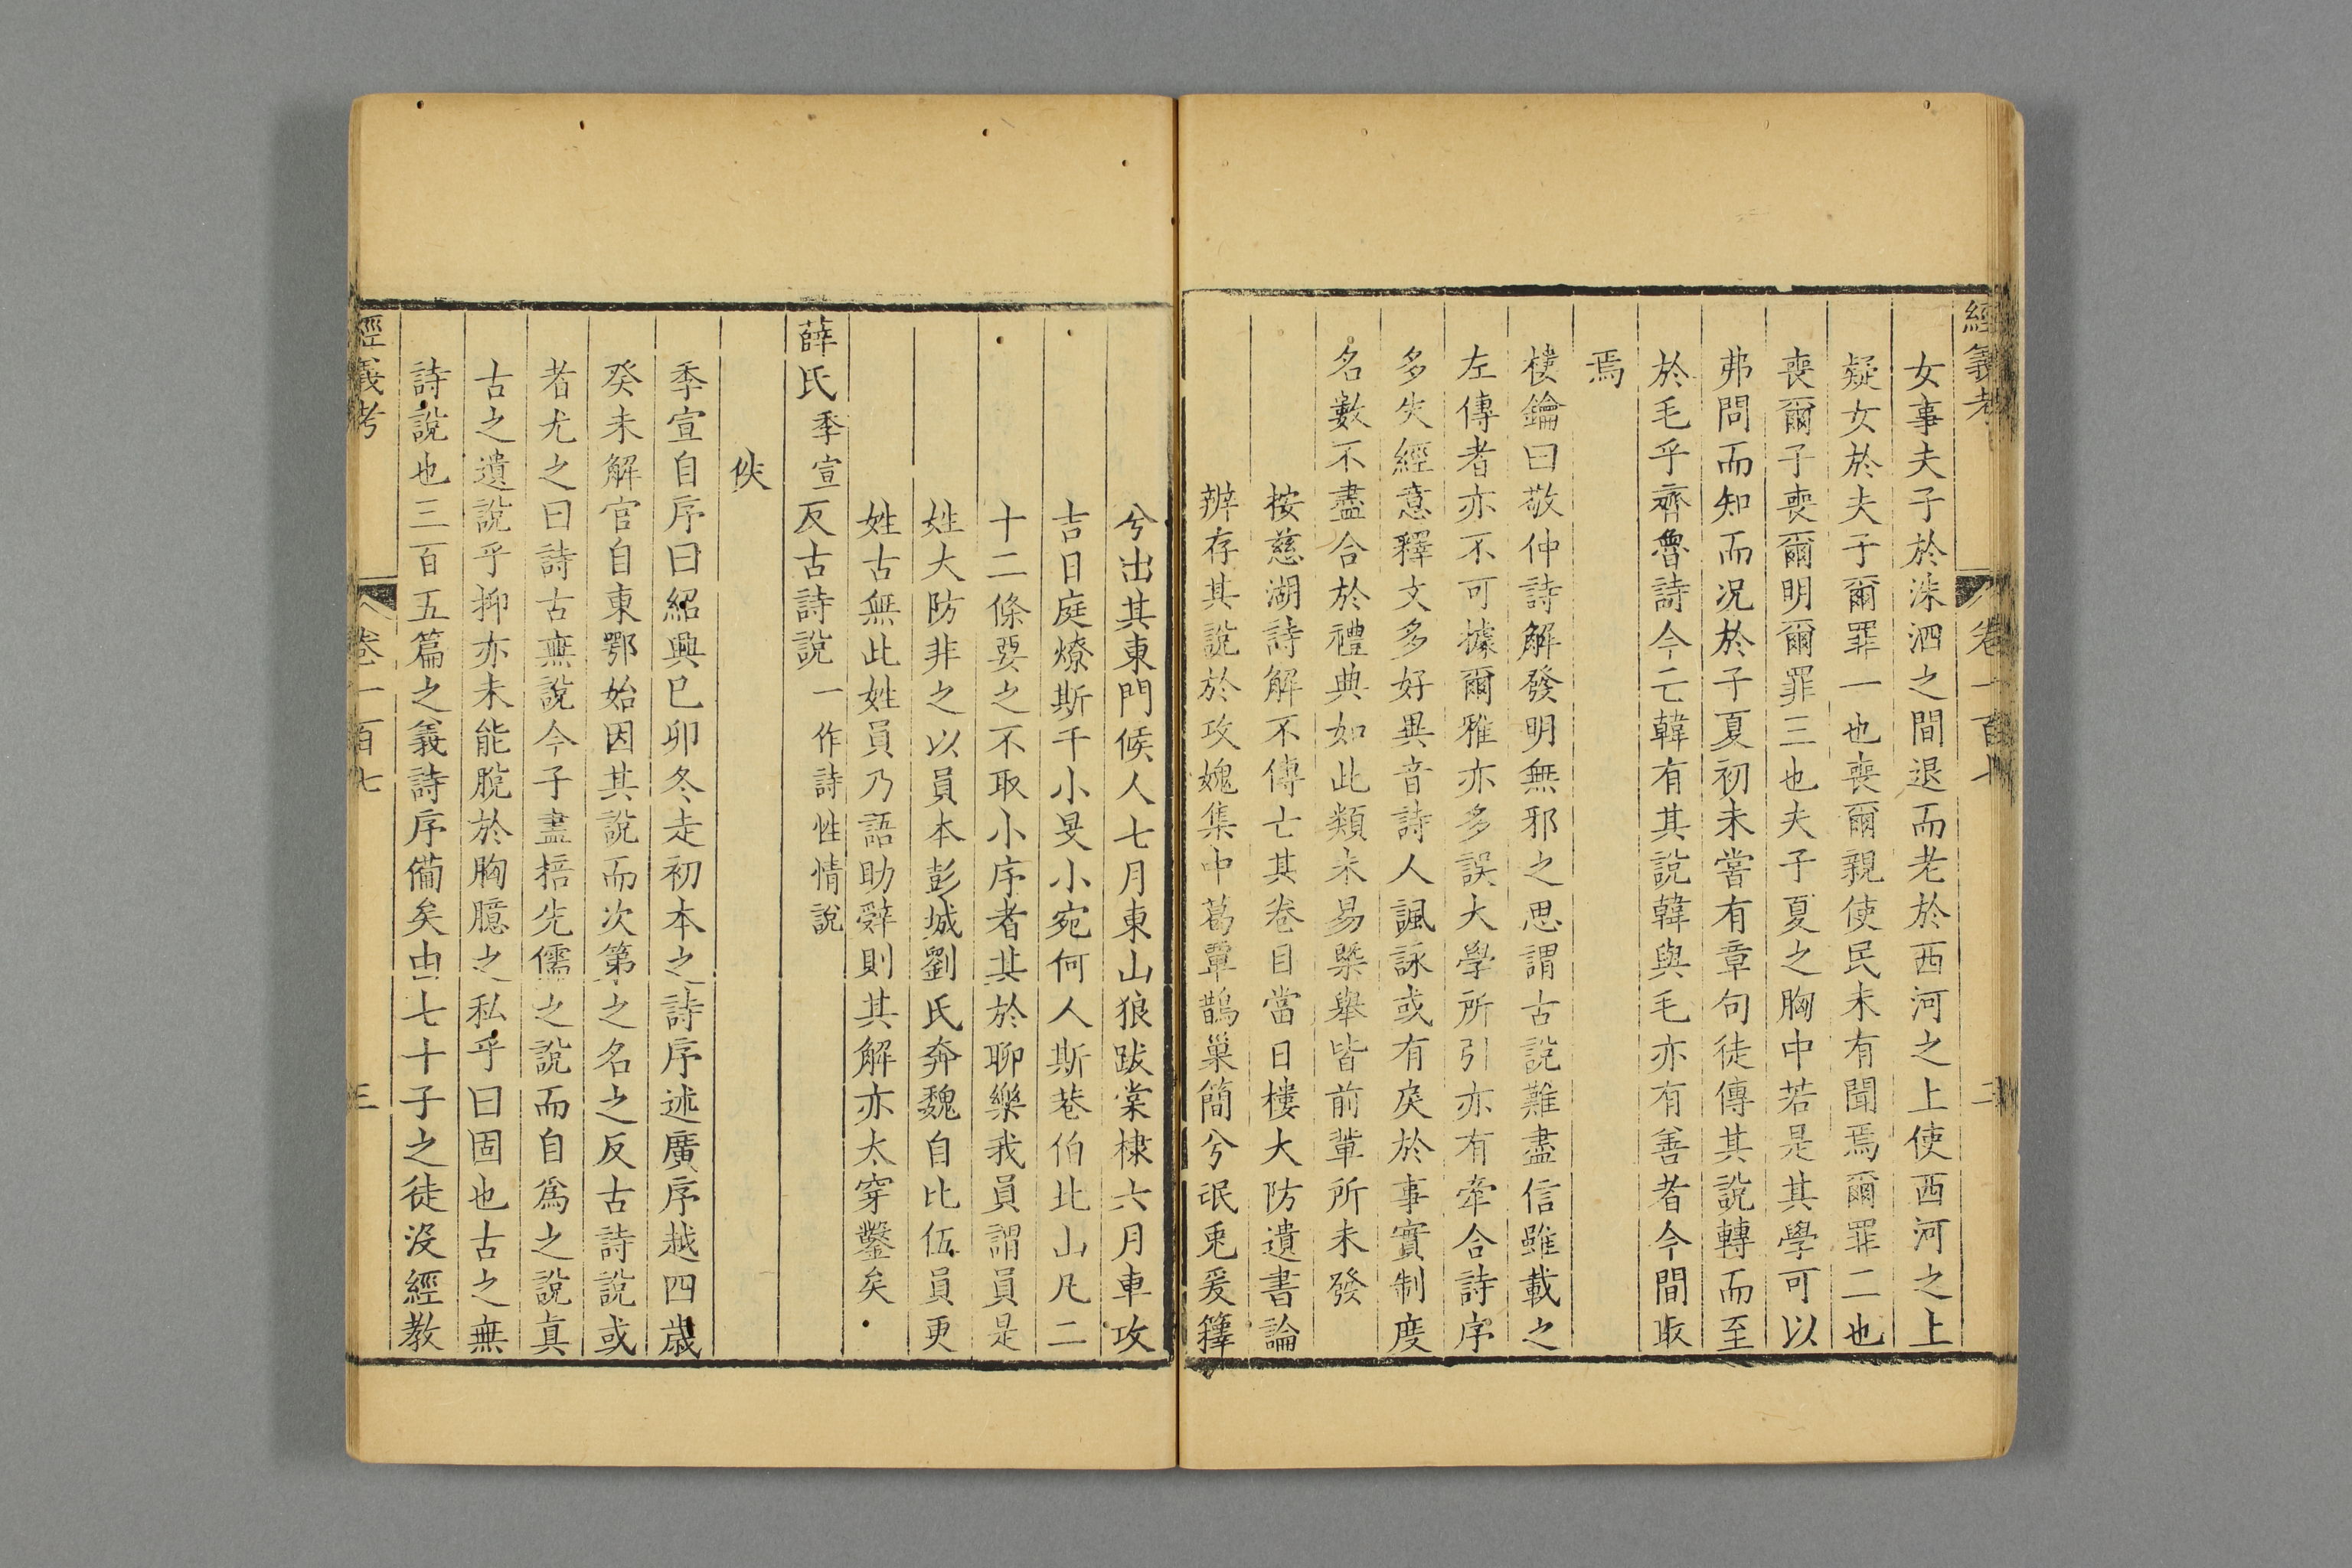 經義考 卷一百七 二
女事夫子於洙泗之間退而老於西河之上使西河之上
疑女於夫子爾罪一也喪爾親使民未有聞焉爾罪二也
喪爾子喪爾明爾罪三也夫子夏之胸中若是其學可以
弗問而知而况於子夏初未嘗有章句徒傳其說轉而至
於毛乎齊魯詩今亡韓有其說韓與毛亦有善者今間取
焉
樓鑰曰敬仲詩解發明無邪之思謂古說難盡信雖載之
左傳者亦不可據爾雅亦多誤大學所引亦有牽合詩序
多失經意釋文多好異音詩人諷詠或有戾於事實制度
名數不盡合於禮典如此類未易槩舉皆前軰所未發
按慈湖詩解不傳亡其卷目當日樓大防遺書論
辨存其說於攻媿集中葛覃鵲巢簡兮氓兎爰籜
兮出其東門候人七月東山狼跋棠棣六月車攻
吉日庭燎斯干小旻小宛何人斯巷伯北山凡二
十二條要之不取小序者其於聊樂我員謂員是
姓大防非之以員本彭城劉氏奔魏自比伍員更
姓古無此姓員乃語助辭則其解亦太穿鑿矣
薛氏季宣反古詩說一作詩性情說
佚
季宣自序曰紹興已卯冬走初本之詩序述廣序越四歲
癸未解官自東鄂始因其說而次第之名之反古詩說或
者尤之曰詩古無說今子盡掊先儒之說而自爲之說真
古之遺說乎抑亦未能脫於胸臆之私乎曰固也古之無
詩說也三百五篇之義詩序備矣由七十子之徒沒經教
經義考 卷一百七 三